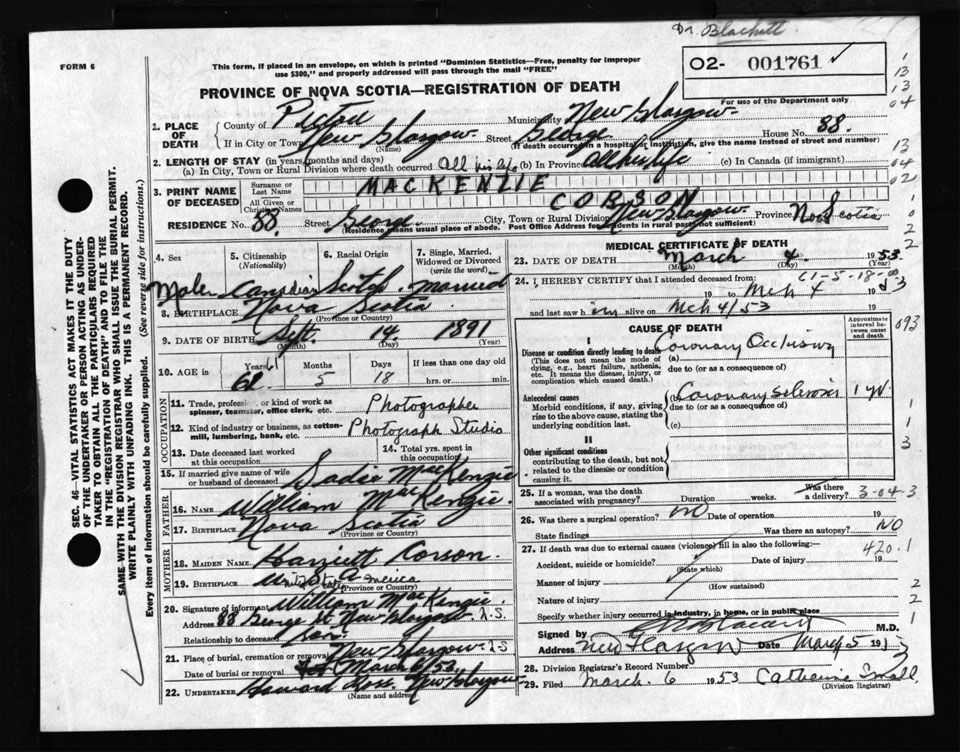 Dr. Blackett
FORM 6
This form, if placed in an envelope, on which is printed "Dominion Statistics—Free, penalty for improper
use $300," and properly addressed will pass through the mail "FREE"
O2- 001761 ✓
For use of the Department only
PROVINCE OF NOVA SCOTIA—REGISTRATION OF DEATH
1. PLACE OF DEATH
County of Pictou Municipality New Glasgow
If in City or Town New Glasgow (Name) Street George House No. 88.
(If death occurred in a hospital or institution, give the name instead of street and number)
2. LENGTH OF STAY (in years, months and days)
(a) In City, Town or Rural Division where death occurred All his life (b) In Province All his life (c) In Canada (if immigrant)
3. PRINT NAME OF DECEASED
Surname or Last Name MACKENZIE
All Given or Christian Names CORSON
RESIDENCE No. 88. Street George City, Town or Rural Division New Glasgow Province Nova Scotia
(Residence means usual place of abode. Post Office Address for residents in rural parts not sufficient)
4. Sex
Male
5. Citizenship (Nationality)
Canadian
6. Racial Origin
Scotch
7. Single, Married, Widowed or Divorced (write the word)
married
8. BIRTHPLACE Nova Scotia
(Province or Country)
9. DATE OF BIRTH Sept. 14 1891
(Month) (Day) (Year)
10. AGE in Years 61 Months 5 Days 18 If less than one day old
hrs. or min.
OCCUPATION
11. Trade, profession, or kind of work as spinner, teamster, office clerk, etc. Photographer
12. Kind of industry or business, as cotton-mill, lumbering, bank, etc. Photograph Studio
13. Date deceased last worked at this occupation
14. Total yrs. spent in this occupation
15. If married give name of wife or husband of deceased Sadie MacKenzie
FATHER
16. Name William MacKenzie.
17. Birthplace Nova Scotia
MOTHER
18. MAIDEN NAME Harriett Corson.
19. BIRTHPLACE United States America
(Province or Country)
20. Signature of informant William MacKenzie.
Address 88 George St New Glasgow N.S.
Relationship to deceased Son.
21. Place of burial, cremation or removal New Glasgow N.S
Date of burial or removal March 6/53
22. UNDERTAKER Howard Ross. New Glasgow
(Name and address)
MEDICAL CERTIFICATE OF DEATH
23. DATE OF DEATH March 4 1953
(Month) (Day) (Year)
24. I HEREBY CERTIFY that I attended deceased from:
19 to Mch 4 1953
and last saw him alive on Mch 4/53
CAUSE OF DEATH
Approximate interval between onset and death
I
Disease or condition directly leading to death
(This does not mean the mode of dying, e.g., heart failure, asthenia, etc. It means the disease, injury, or complication which caused death.)
(a) Coronary Occlusion
due to (or as a consequence of)
Antecedent causes
Morbid conditions, if any, giving rise to the above cause, stating the underlying condition last.
(b) Coronary sclerosis 1 yr
due to (or as a consequence of)
(c)
II
Other significant conditions
contributing to the death, but not related to the disease or condition causing it.
25. If a woman, was the death associated with pregnancy? Duration weeks. Was there a delivery? 3-04-3
26. Was there a surgical operation? NO Date of operation 19
State findings Was there an autopsy? NO
27. If death was due to external causes (violence) fill in also the following:— 420.1
Accident, suicide or homicide? Date of injury 19
(State which)
Manner of injury
(How sustained)
Nature of injury
Specify whether injury occurred in industry, in home, or in public place
Signed by M.D.
Address New Glasgow Date March 5 1953
28. Division Registrar's Record Number
29. Filed March. 6 1953 Catherine Small
(Division Registrar)
SEC. 46—VITAL STATISTICS ACT MAKES IT THE DUTY
OF THE UNDERTAKER OR PERSON ACTING AS UNDER-
TAKER TO OBTAIN ALL THE PARTICULARS REQUIRED
IN THE "REGISTRATION OF DEATH" AND TO FILE THE
SAME WITH THE DIVISION REGISTRAR WHO SHALL ISSUE THE BURIAL PERMIT.
WRITE PLAINLY WITH UNFADING INK. THIS IS A PERMANENT RECORD.
Every item of information should be carefully supplied. (See reverse side for instructions.)
1
13
13
04
13
04
02
1
0
2
2
093
1
1
3
2
2
1